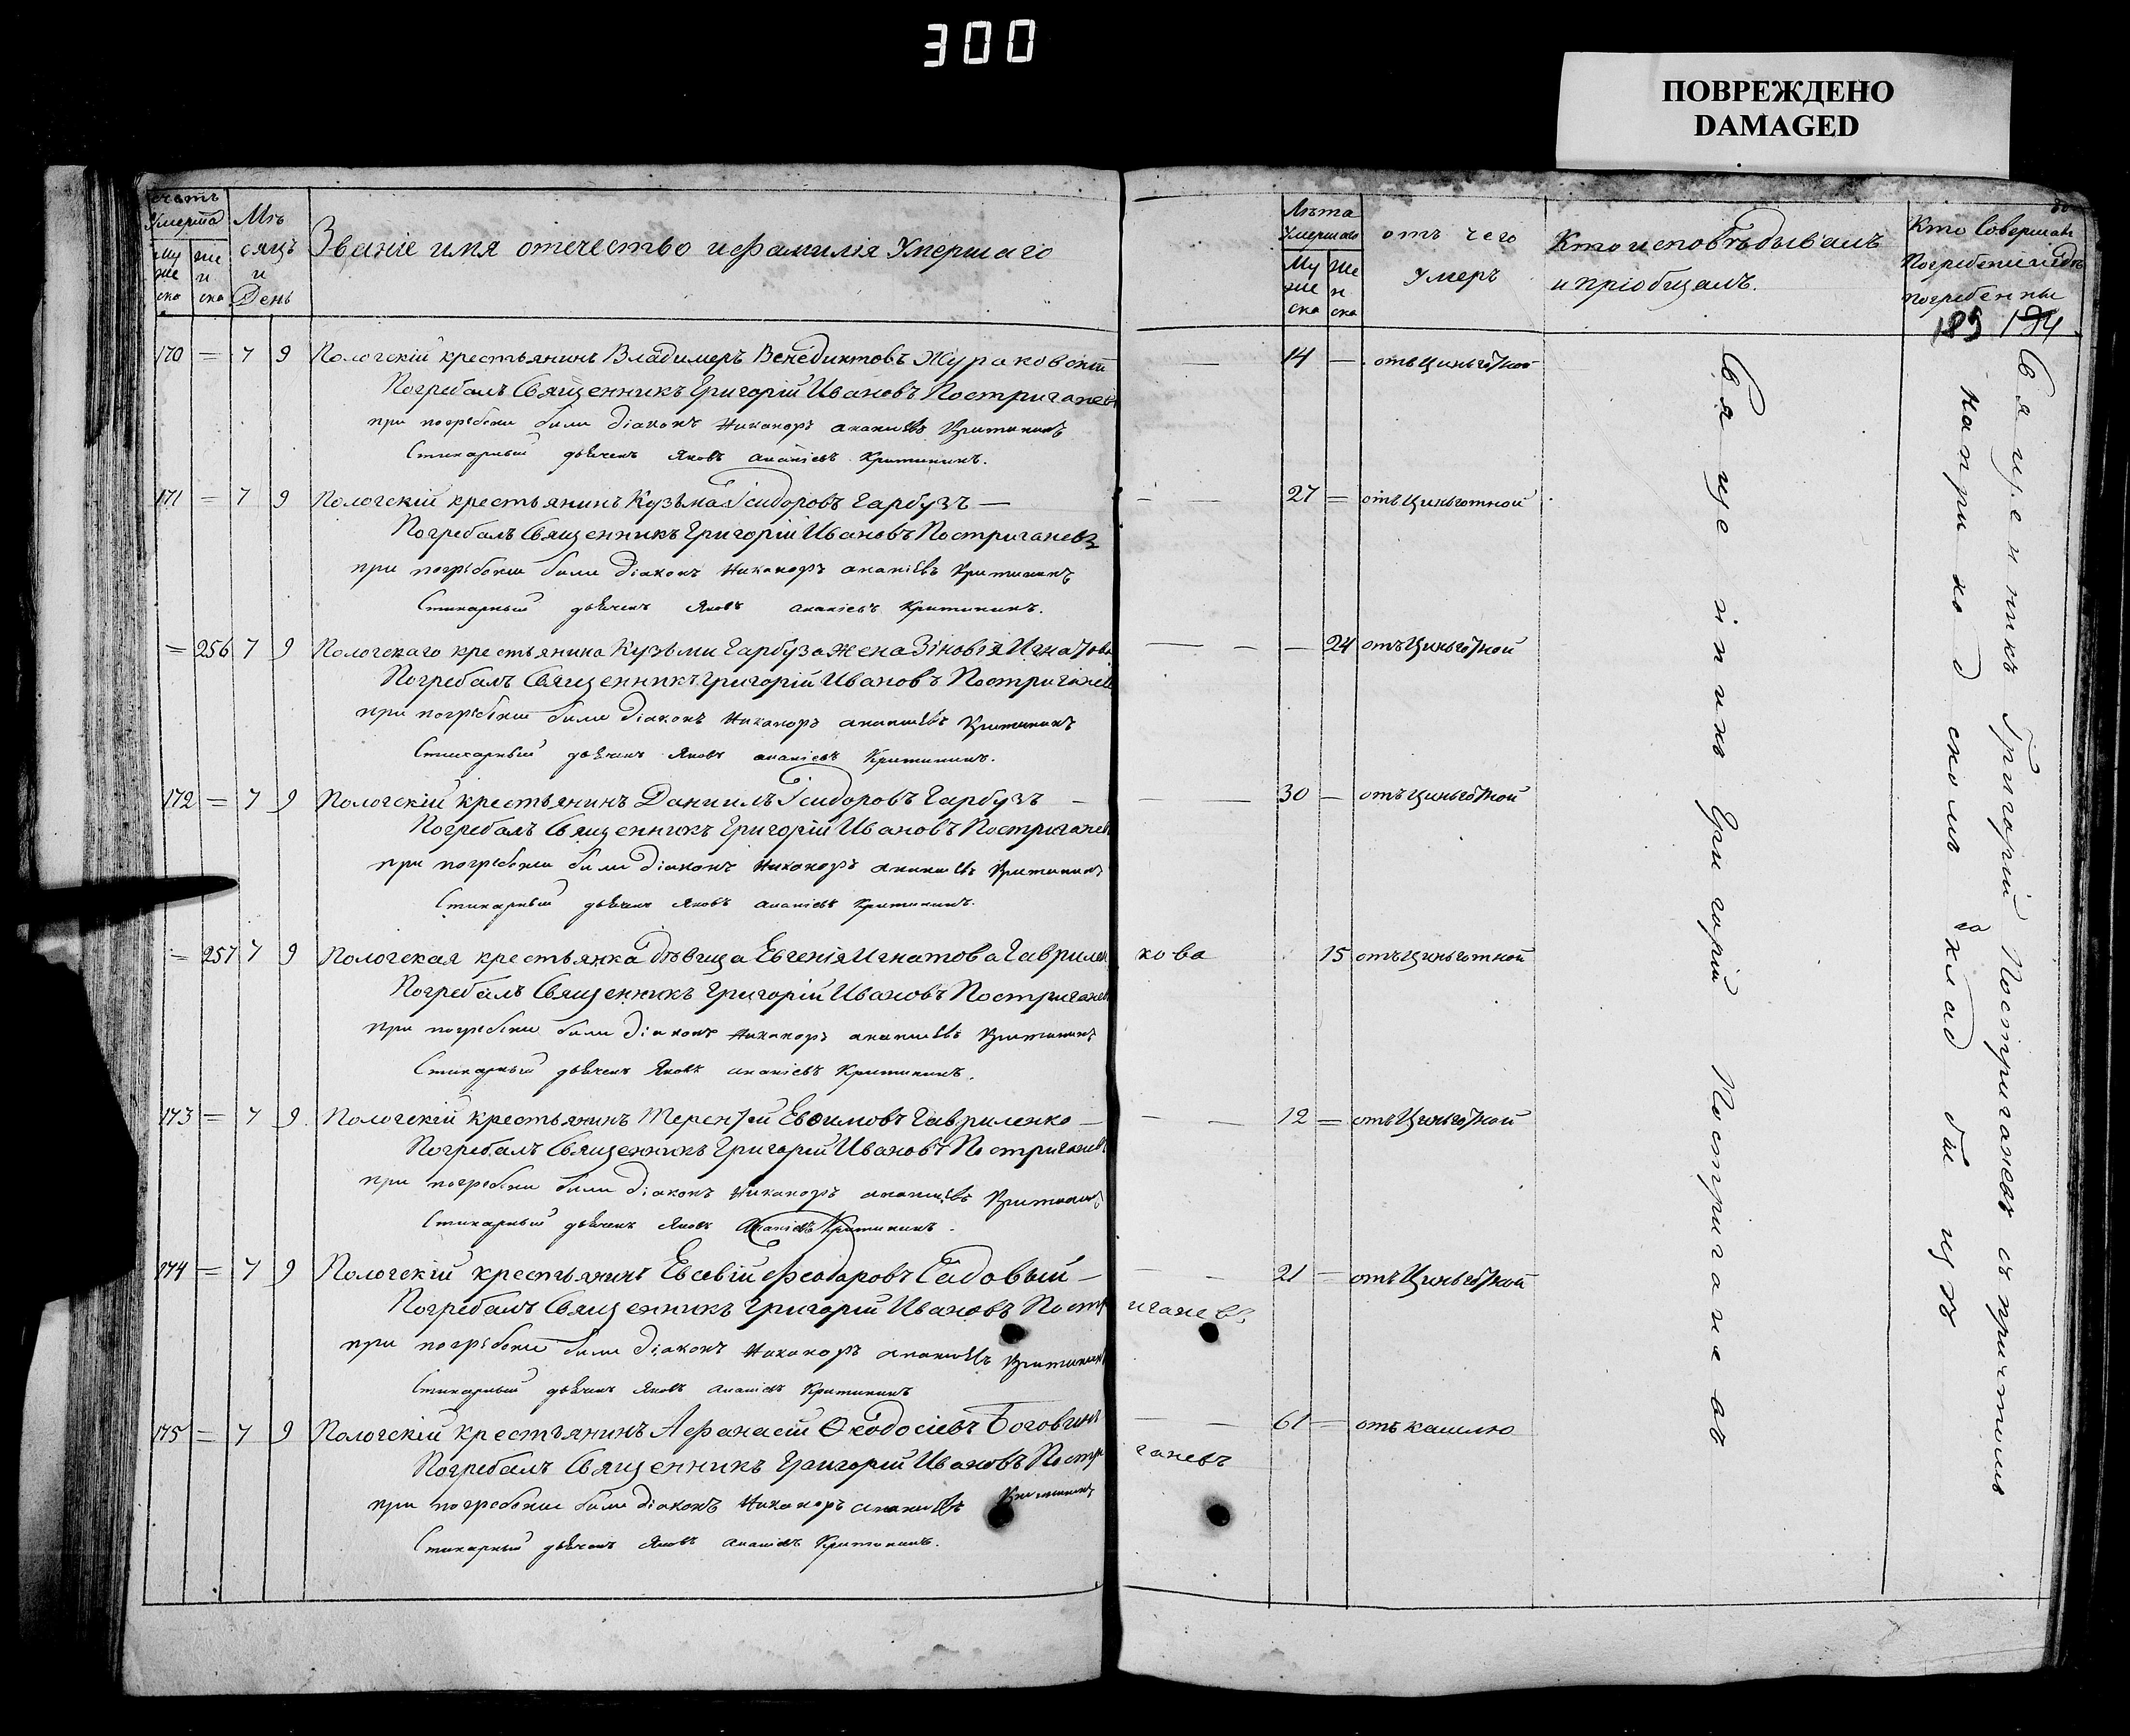 300
ПОВРЕЖДЕНО
DAMAGED
счетъ Умерша
Му же ска
Же н ска
Мѣсяцъ и День
Званіе имя отечество и фамилія Умершаго
Лѣта Умершаго
Му же ска
Же н ска
отъ чего Умеръ
Кто исповѣдывалъ и пріобщалъ.
Кто Совершалъ Погребеніе и гдѣ погребенны
189 194
170 = 7 9 Пологскій крестьянинъ Владимеръ Венедиктовъ Жураковскій — 14 — отъ Цинготной
Погребалъ Священникъ Григорій Ивановъ Постриганевъ
при погребении були Діаконъ Никаноръ Ананиевъ Критининъ
Стихарный дьячекъ Яковъ Ананіевъ Критининъ.
171 = 7 9 Пологскій крестьянинъ Кузьма Ісидоровъ Гарбузъ — — — 27 = отъ Цинготной
Погребалъ Священникъ Григорій Ивановъ Постриганевъ
при погребении були Діаконъ Никаноръ Ананіевъ Критининъ
Стихарный дьячекъ Яковъ Ананіевъ Критининъ.
= 256 7 9 Пологскаго крестьянина Кузьми Гарбуза жена Зіновія Игнатова — — — 24 отъ Цинготной
Погребалъ Священникъ Григорій Ивановъ Постриганевъ
при погребении були Діаконъ Никаноръ Ананиевъ Критининъ
Стихарный дьячекъ Яковъ Ананіевъ Критининъ.
172 = 7 9 Пологскій крестьянинъ Даниилъ Ісидоровъ Гарбузъ — — — 30 — отъ Цинготной
Погребалъ Священникъ Григорій Ивановъ Постриганевъ
при погребении були Діаконъ Никаноръ Ананиевъ Критининъ
Стихарный дьячекъ Яковъ Ананіевъ Критининъ.
= 257 7 9 Пологская крестьянка Дѣвица Евгенія Игнатова Гавриленкова 15 отъ Цинготной
Погребалъ Священникъ Григорій Ивановъ Постриганевъ
при погребении були Діаконъ Никаноръ Ананиевъ Критининъ
Стихарный дьячекъ Яковъ Ананіевъ Критининъ.
173 = 7 9 Пологскій крестьянинъ Терентій Евѳимовъ Гавриленко — — — 12 = отъ Цинготной
Погребалъ Священникъ Григорій Ивановъ Постриганевъ
при погребении були Діаконъ Никаноръ Ананиевъ Критининъ
Стихарный дьячекъ Яковъ Ананіевъ Критининъ.
174 = 7 9 Пологскій крестьянинъ Евсевій Феодоровъ Гадовый — — — 21 — отъ Цинготной
Погребалъ Священникъ Григорій Ивановъ Постриганевъ
при погребении були Діаконъ Никаноръ Ананиевъ Критининъ
Стихарный дьячекъ Яковъ Ананіевъ Критининъ
175 = 7 9 Пологскій крестьянинъ Афанасій Ѳеодосіевъ Боговинъ — — 61 — отъ кашлю
Погребалъ Священникъ Григорій Ивановъ Постриганевъ
при погребении були Діаконъ Никаноръ Ананиевъ Критининъ
Стихарный дьячекъ Яковъ Ананіевъ Критининъ.
Священникъ Григорій Постриганевъ
Священникъ Григорій Постриганевъ съ причтомъ
на приходскомъ кладбищѣ